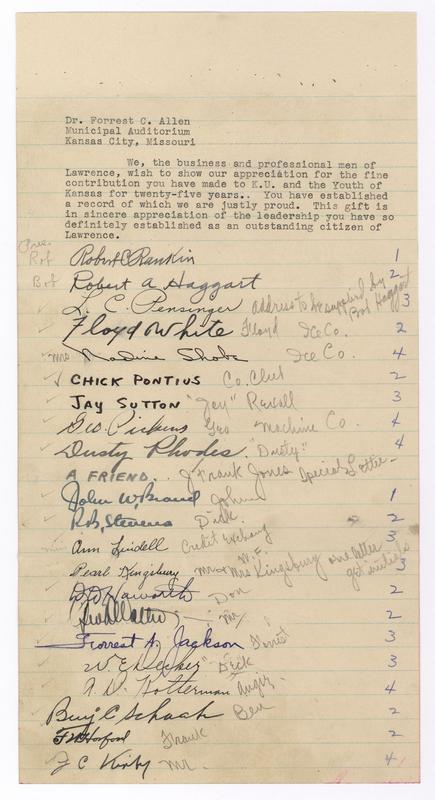 Dr. Forrest C. Allen
Municipal Auditorium
Kansas City, Missouri
We, the business and professional men of
Lawrence, wish to show our appreciation for the fine
contribution you have made to K.U. and the Youth of
Kansas for twenty-five years.. You have established
a record of which we are justly proud. This gift is
in sincere appreciation of the leadership you have so
definitely established as an outstanding citizen of
Lawrence.
Rob Robert C Rankin 1
Bob Robert A Haggart 2
L. C. Pensinger address to be supplied by Bob Haggart 3
Floyd White Floyd Ice Co. 2
Mrs Nadine Shobe Ice Co. 4
CHICK PONTIUS Co. Club 2
JAY SUTTON "Jay" Rexall 3
Geo. Pickens Geo Machine Co. 4
Dusty Rhodes. "Dusty" 4
A FRIEND. J Frank Jones Special Letter
John W. Brand John 1
R.B. Stevens Dick 2
Ann Lindell Credit Exchang 3
Pearl Kingsbury Mr & Mrs W.F. Kingsbury one letter 3
Haworth Don 2
Mr 2
Forrest A. Jackson Forrest 3
W E Decker "Deck" 3
Hotterman 4
Benj C Schaak Ben 2
Frank 2
J C Kirby Mr. 4